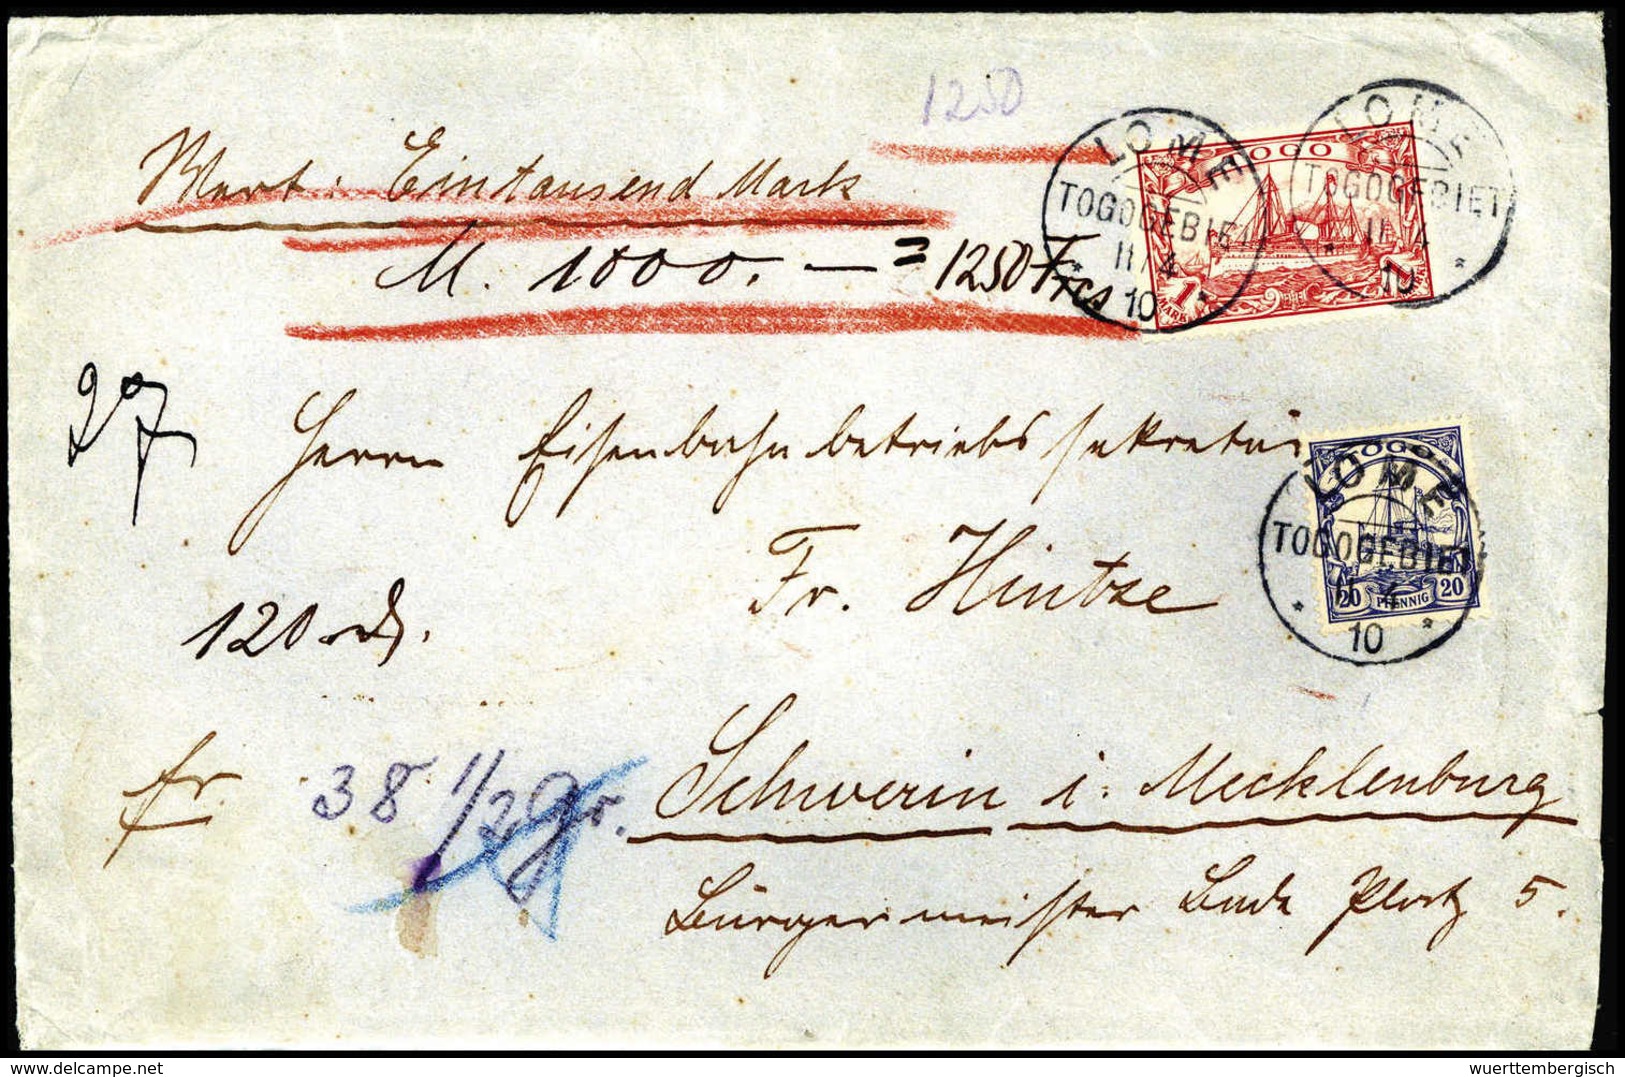 1250
Wert: Eintausend Mark
M. 1000. — = 1250 Frcs
LOME
TOGOGEBIET
11/4
10
LOME
TOGOGEBIET
11/4
10
TOGO
1 MARK
1 MARK
27
Herrn Eisenbahnbetriebssekretär
Fr. Hintze
TOGO
20 PFENNIG 20
LOME
TOGOGEBIET
10
120
fr.
38 1/2 gr.
Schwerin i. Mecklenburg
Bürgermeister Bade Platz 5.
wuerttembergisch